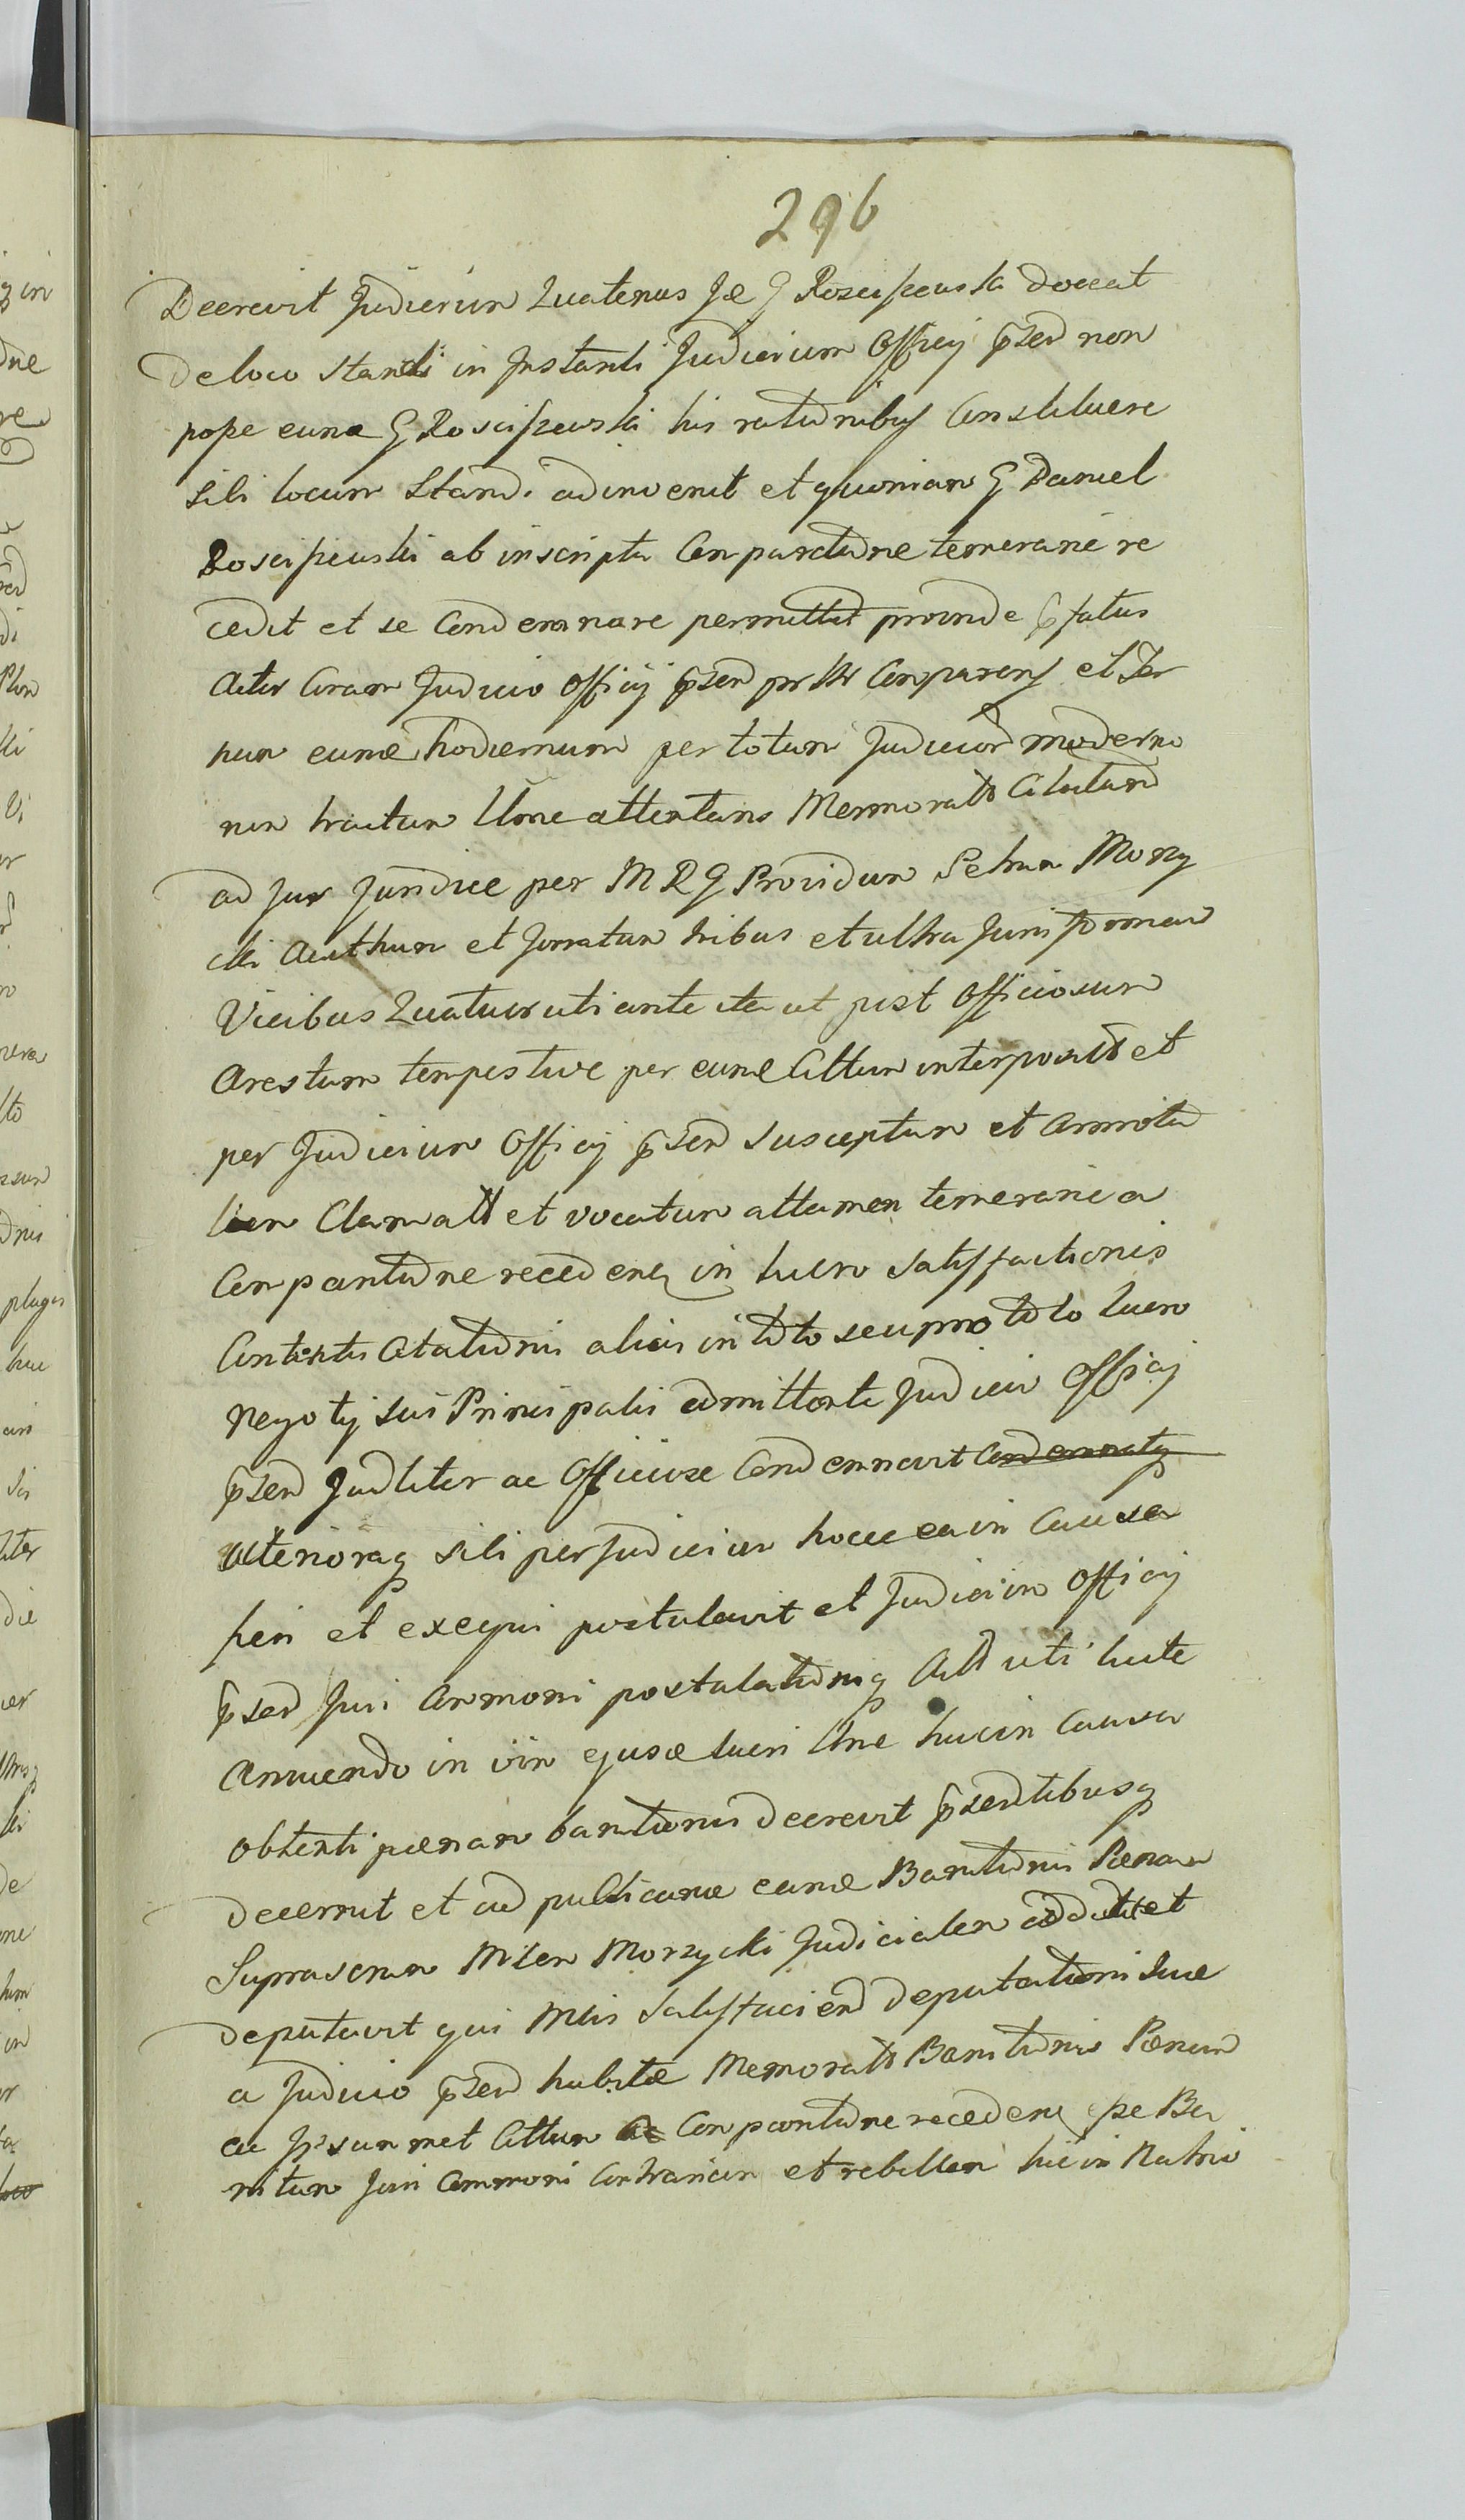 296
Decrevit Judicium Quatenus Idem G Rosciszewski doceat
de loco standi in Instanti Judicium Officij prsen non
posse eund G Roscisżewski his rationibus Constituere
sibi locum Standi adinvenit et quoniam G Daniel
Rosciszewski ab inscripta Comparitione temerarie re
cedit et se Condemnare permittit proinde pfatus
Actor Coram Judicio Officij prsen prstr Comparens et Ter
num eund hodiernum per totum Judicior moderno
rum tractum attentans Memorat Citatum
ad Jus Juridice per M R G Providum Petrum Morzy
cki Aucthum et Juratum tribus et ultra Juris
Vicibus Quatuor uti ante ita ut post Officiosum
Arestum tempestive per eund Cittum interposit et
per Judicium Officij prsen susceptum et Annota
tum Clamatt et vocatum attamen temerarie a
Comparitione recedene in lucro satisfactionis
Contentis Citationis alias in toto seu pro toto lucro
Negotij sui Principalis admittente Judicio Officij
prsen Judliter ac Officiose Condemnavit Condemnatq
Ulterioraq sibi per Judicium hocce ea in Causa
fieri et exequi postulavit et Judicium Officij
prsen Juri Commoni postulationiq Actt uti
Annuendo in vim ejusd lucri huc in Causa
obtenti pænam banitionis decrevit prsentibusq
decernit et ad publicand eand Banitionis Pænam
Suprascrum Mslem Morzycki Judicialem addidit et
deputavit qui Mslis Satisfaciend deputationi suæ
a Judicio prsen habitæ Memorat Banitionis Pænam
ac Ipsummet Cittum a Comparitione recedene Ba
nitum Juri Commoni Contrarium et rebellem hic in